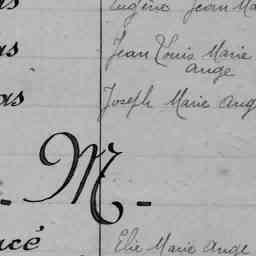 as Eugène Jean Ma
as Jean Louis Marie
Ange
as Joseph Marie Ang
- M -
ucé Elie Marie Ange